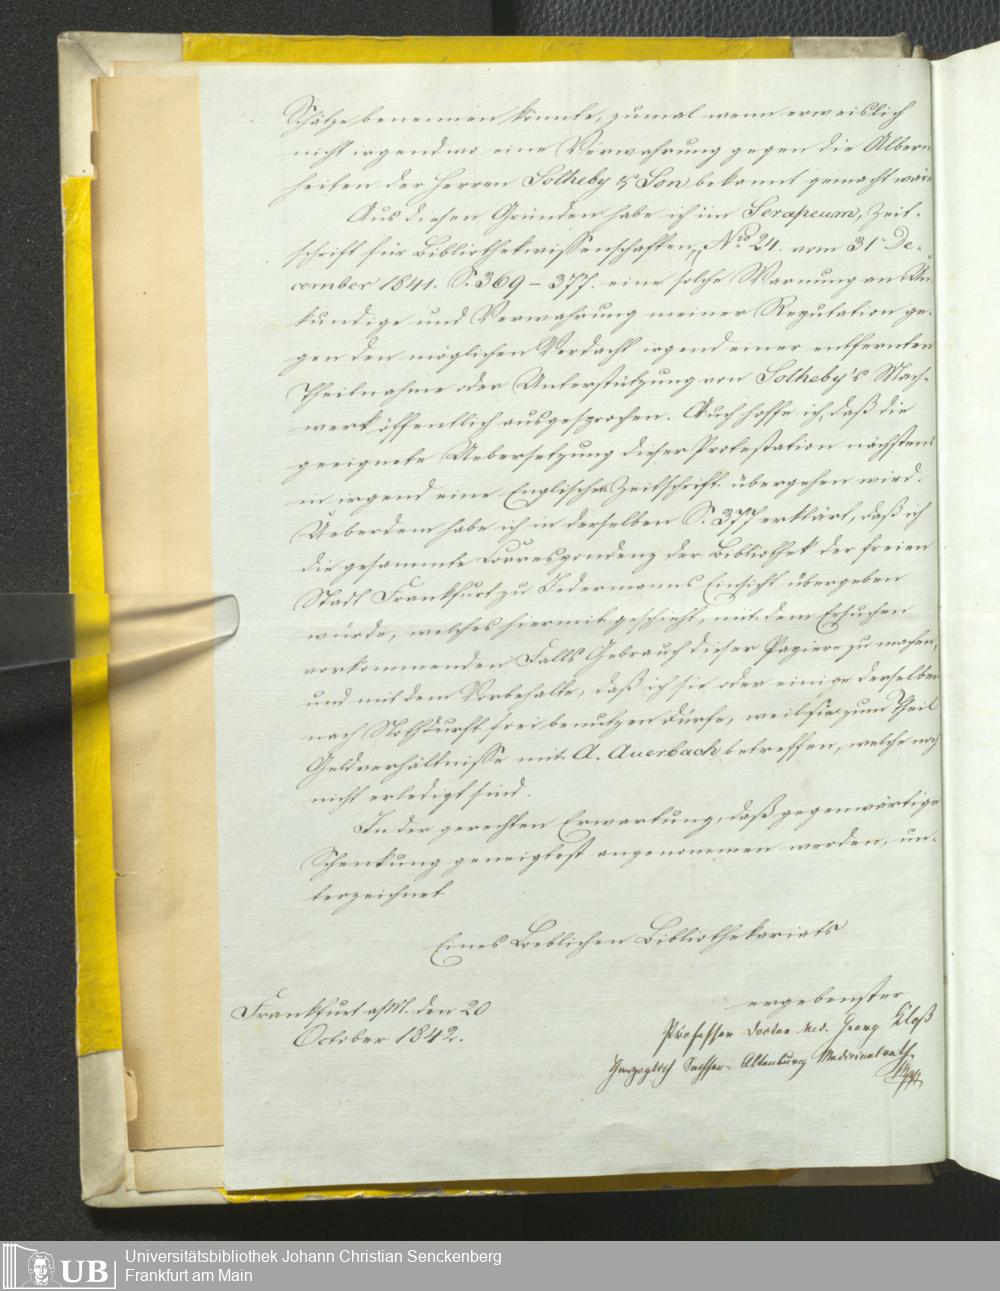 Schätze benennen könnte, zumal wenn erweislich
nicht irgendwo eine Verwahrung gegen die Albern
heiten der Herren Sotheby & Son bekannt gemacht wäre
Aus diesen Gründen habe ich im Serapeum, Zeit-
schrift für Bibliothekwissenschaften, Nro 24. vom 31 De-
cember 1841. S. 369 – 377. eine solche Warnung an Un-
kundige und Verwahrung meiner Reputation ge-
gen den möglichen Verdacht irgend einer entfernten
Theilnahme oder Unterstützung von Sotheby's Mach-
werk öffentlich ausgesprochen. Auch hoffe ich, daß die
geeignete Uebersetzung dieser Protestation nächstens
in irgend eine Englische Zeitschrift übergehen wird.
Ueberdem habe ich in derselben S. 377 erklärt, daß ich
die gesammte Correspondenz der Bibliothek der freien
Stadt Frankfurt zu Jedermanns Einsicht übergeben
würde, welches hiermit geschieht, mit dem Ersuchen
vorkommenden Falls Gebrauch dieser Papiere zu machen,
und mit dem Vorbehalte, daß ich sie oder einige derselben
nach Nothdurft frei benutzen dürfe, weil sie zum Theil
Geldverhältnisse mit A. Auerbach betreffen, welche noch
nicht erledigt sind.
In der gerechten Erwartung, daß gegenwärtige
Schenkung geneigtest angenommen werden, un-
terzeichnet
Eines Loeblichen Bibliothekariats
ergebenster
Frankfurt a/M. den 20
October 1842.
Professor Doctor med. Georg Kloß
Herzoglich Sachsen-Altenburg Medicinalrath.
UB
Universitätsbibliothek Johann Christian Senckenberg
Frankfurt am Main